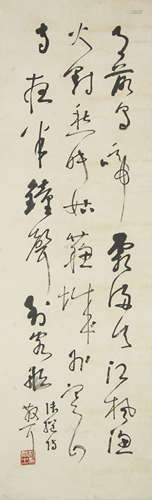 月落烏啼霜滿天江楓漁
火對愁眠姑蘇城外寒山
寺夜半鐘聲到客船
張繼詩